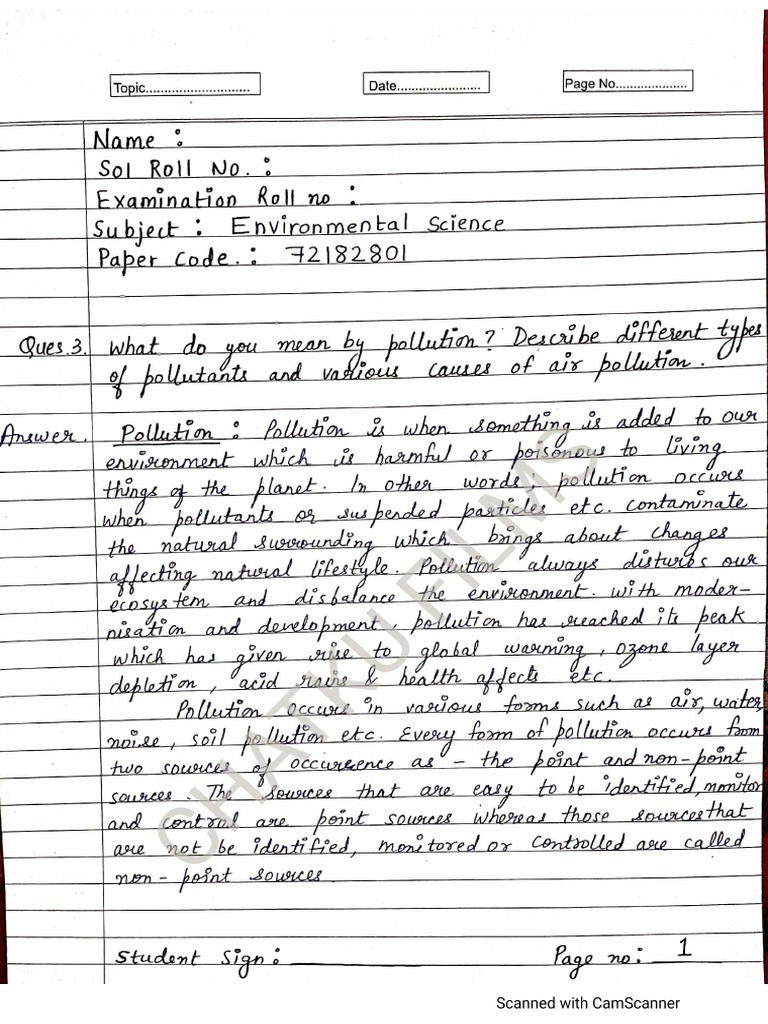 Topic............................
Date.......................
Page No....................
Name :
Sol Roll No. :
Examination Roll no :
Subject : Environmental Science
Paper Code. : 72182801
Ques.3. What do you mean by pollution? Describe different types
of pollutants and various causes of air pollution.
Answer. Pollution : Pollution is when something is added to our
environment which is harmful or poisonous to living
things of the planet. In other words, pollution occurs
when pollutants or suspended particles etc. contaminate
the natural surrounding which brings about changes
affecting natural lifestyle. Pollution always disturbs our
ecosystem and disbalance the environment. with moder-
nisation and development, pollution has reached its peak
which has given rise to global warming, ozone layer
depletion, acid rains & health affects etc.
Pollution occurs in various forms such as air, water,
noise, soil pollution etc. Every form of pollution occurs from
two sources of occurrence as - the point and non-point
sources. The sources that are easy to be identified, monitor
and control are point sources whereas those sources that
are not be identified, monitored or controlled are called
non-point sources
CHATKU FILMS
Student Sign : __________ Page no: 1
Scanned with CamScanner